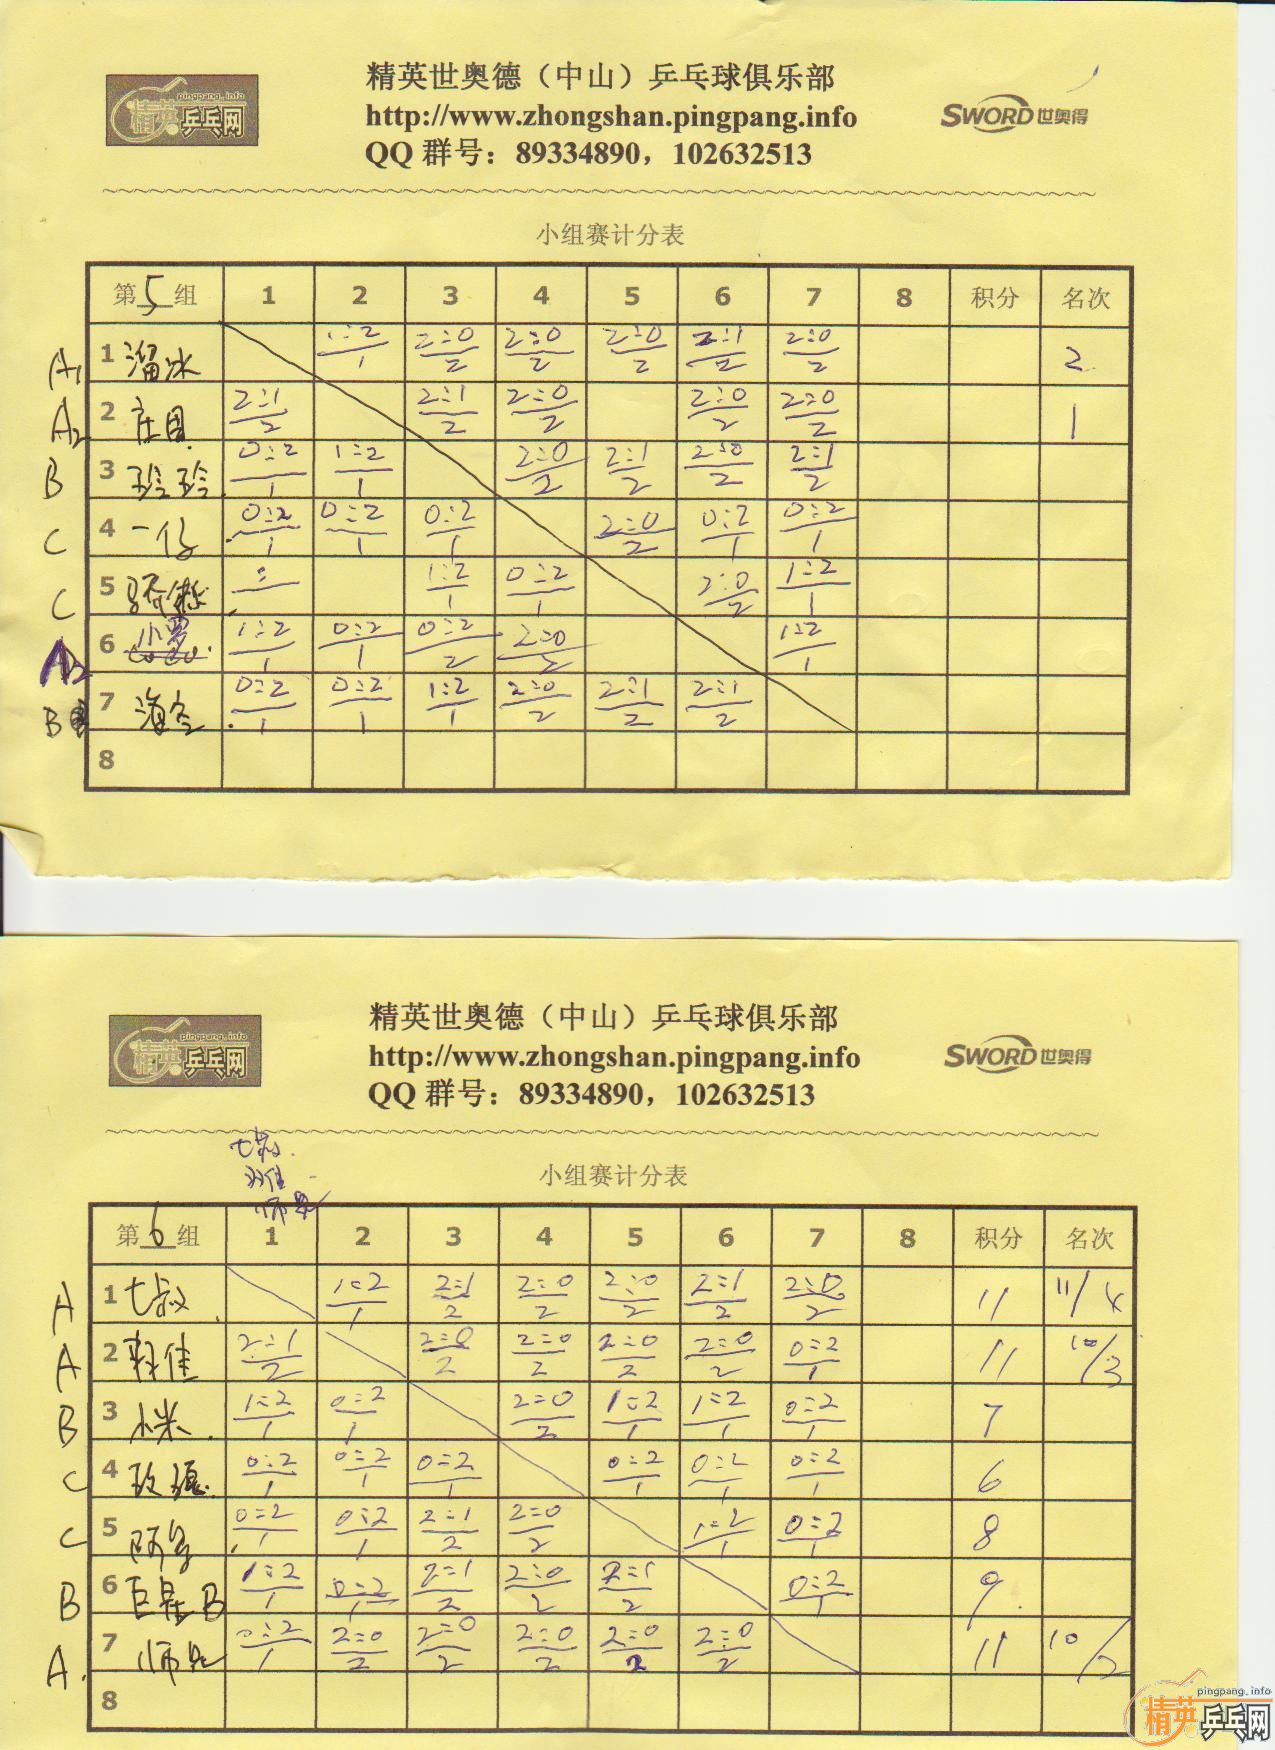 pingpang.info
精英乒乓网
精英世奥德（中山）乒乓球俱乐部
http://www.zhongshan.pingpang.info
QQ 群号：89334890，102632513
SWORD世奥得
小组赛计分表
第5组 1 2 3 4 5 6 7 8 积分 名次
A1 1 溜冰 1:2/1 2:0/2 2:0/2 2:0/2 2:1/2 2:0/2 2
A2 2 2:1/2 2:1/2 2:0/2 2:0/2 2:0/2 1
B 3 玲玲 0:2/1 1:2/1 2:0/2 2:1/2 2:0/2 2:1/2
C 4 一仔 0:2/1 0:2/1 0:2/1 2:0/2 0:2/1 0:2/1
C 5 : 1:2/1 0:2/1 2:0/2 1:2/1
A2 6 小罗 1:2/1 0:2/1 0:2/2 2:0/2 1:2/1
B 7 0:2/1 0:2/1 1:2/1 2:0/2 2:1/2 2:1/2
8
pingpang.info
精英乒乓网
精英世奥德（中山）乒乓球俱乐部
http://www.zhongshan.pingpang.info
QQ 群号：89334890，102632513
SWORD世奥得
七叔
小组赛计分表
第6组 1 2 3 4 5 6 7 8 积分 名次
A 1 七叔 1:2/1 2:1/2 2:0/2 2:0/2 2:1/2 2:0/2 11 11/4
A 2 2:1/2 2:0/2 2:0/2 2:0/2 2:0/2 0:2/1 11 10/3
B 3 小米 1:2/1 0:2/1 2:0/2 1:2/1 1:2/1 0:2/1 7
C 4 玫瑰 0:2/1 0:2/1 0:2/1 0:2/1 0:2/1 0:2/1 6
C 5 0:2/1 0:2/1 2:1/2 2:0/2 1:2/1 0:2/1 8
B 6 1:2/1 0:2/1 2:1/2 2:0/2 2:1/2 0:2/1 9
A 7 0:2/1 2:0/2 2:0/2 2:0/2 2:0/2 2:0/2 11 10/2
8
pingpang.info
精英乒乓网